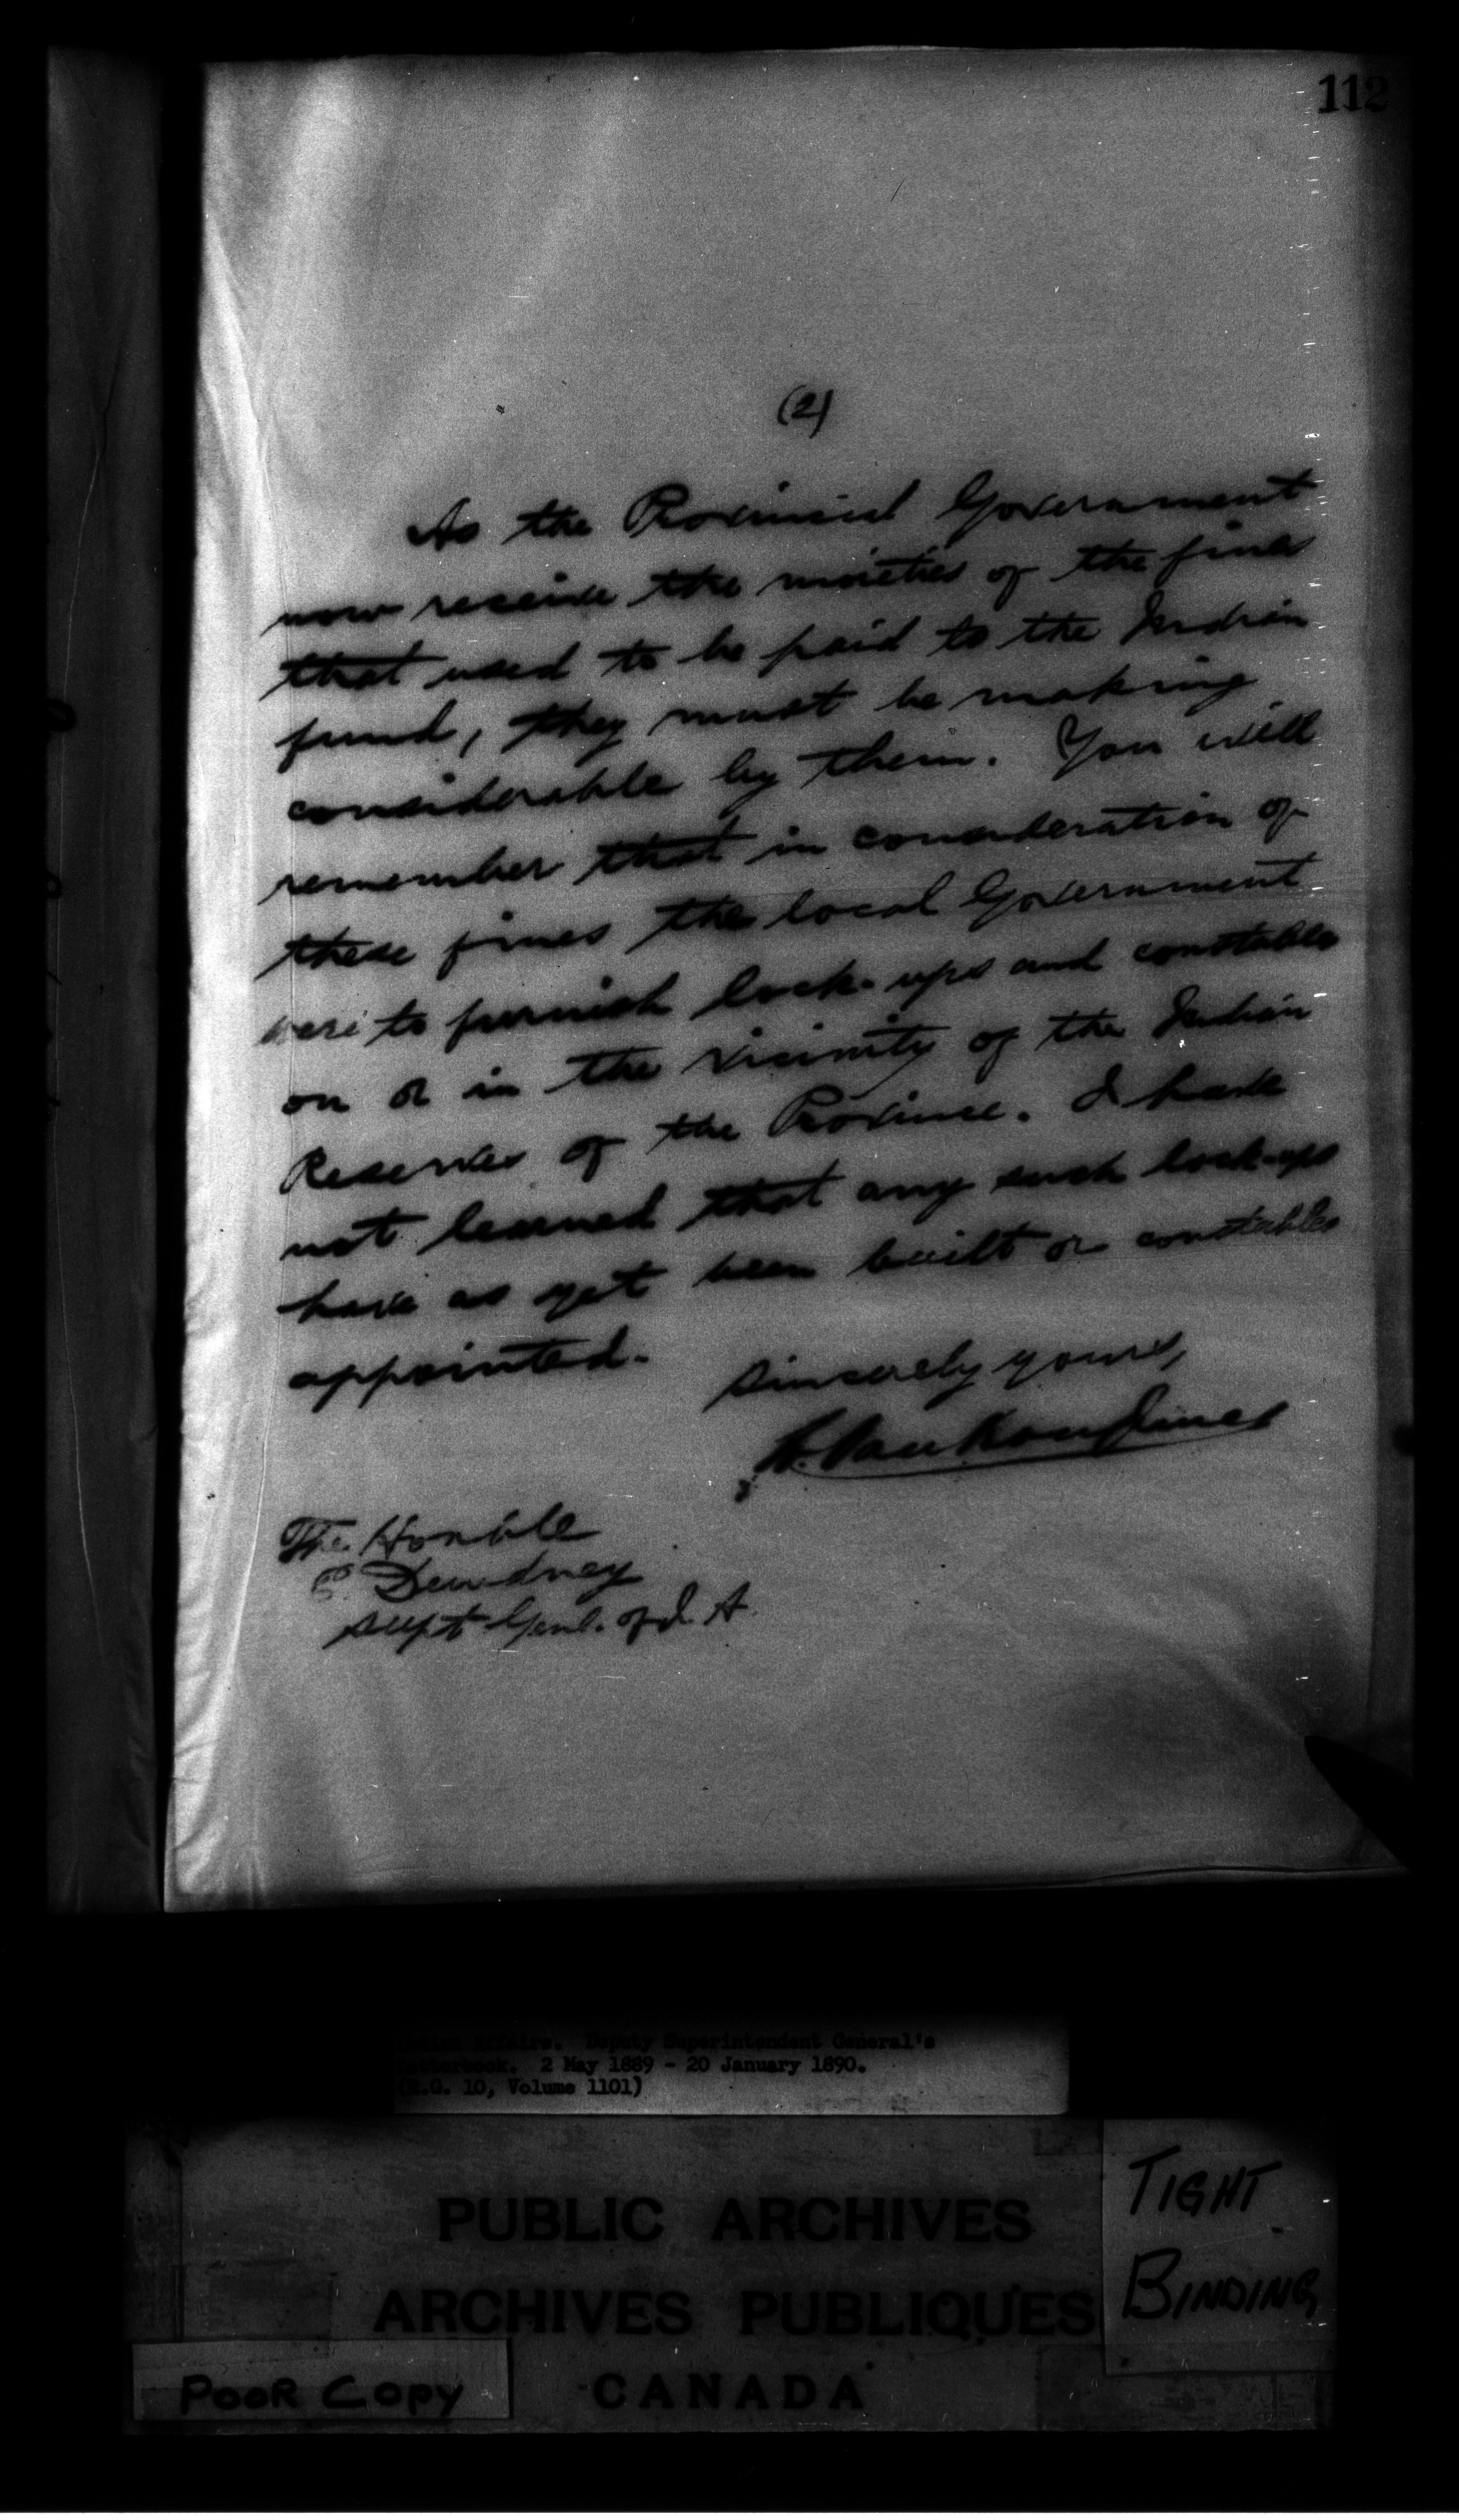 112
(2)
As the Provincial Government
now receive the moieties of the fines
that used to be paid to the Indian
fund, they must be making
considerable by them. You will
remember that in consideration of
these fines the local Government
were to furnish lock-ups and constables
on or in the vicinity of the Indian
Reserves of the Province. I have
not learned that any such lock-ups
have as yet been built or constables
appointed.
Sincerely yours,
L. VanKoughnet
The Honble
E Dewdney
Supt Genl. of I. A.
Indian Affairs. Deputy Superintendent General's
Letterbook. 2 May 1889 - 20 January 1890.
(R.G. 10, Volume 1101)
TIGHT
BINDING
PUBLIC ARCHIVES
ARCHIVES PUBLIQUES
CANADA
POOR COPY